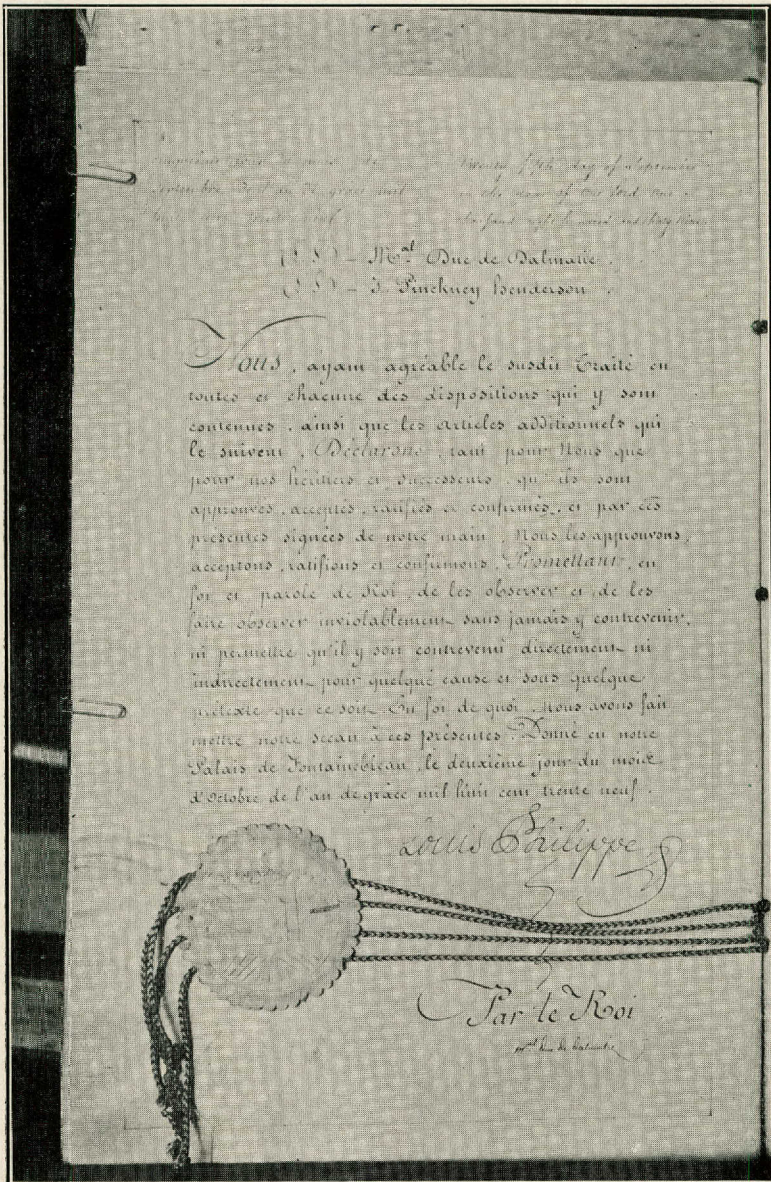 cinquième jour du mois de
Septembre de l'an de grâce mil
huit cent trente neuf.
twenty fifth day of September
in the year of our Lord one
thousand eight hundred and thirty nine
(L S) - Mal Duc de Dalmatie.
(L S) - J. Pinckney Henderson.
Nous, ayant agréable le susdit Traité en
toutes et chacune des dispositions qui y sont
contenues, ainsi que les articles additionnels qui
le suivent, Déclarons, tant pour Nous que
pour nos héritiers et successeurs, qu'ils sont
approuvés, acceptés, ratifiés et confirmés, et par ces
présentes signées de notre main, Nous les approuvons,
acceptons, ratifions et confirmons, Promettant, en
foi et parole de Roi, de les observer et de les
faire observer inviolablement sans jamais y contrevenir,
ni permettre qu'il y soit contrevenu directement ni
indirectement pour quelque cause et sous quelque
prétexte que ce soit. En foi de quoi, Nous avons fait
mettre notre sceau à ces présentes. Donné en notre
Palais de Fontainebleau, le deuxième jour du mois
d'Octobre de l'an de grâce mil huit cent trente neuf.
Louis Philippe
Par le Roi
Mal Duc de Dalmatie